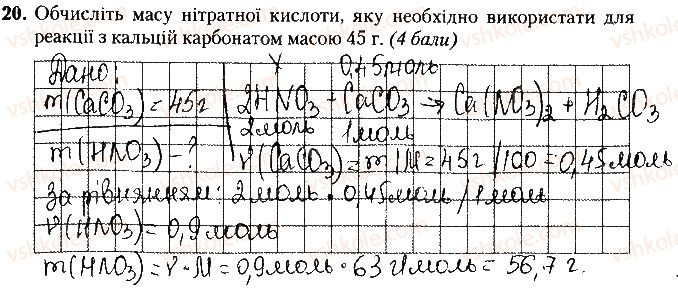 20. Обчисліть масу нітратної кислоти, яку необхідно використати для
реакції з кальцій карбонатом масою 45 г. (4 бали)
Дано: X 0,45моль
m(CaCO₃)=45г 2HNO₃ + CaCO₃ → Ca(NO₃)₂ + H₂CO₃
2моль 1моль
m(HNO₃)-? ν(CaCO₃)=m/M=45г/100=0,45моль
За рівнянням: 2моль · 0,45моль/1моль
ν(HNO₃)=0,9моль
m(HNO₃)=ν·M=0,9моль·63 г/моль=56,7 г.